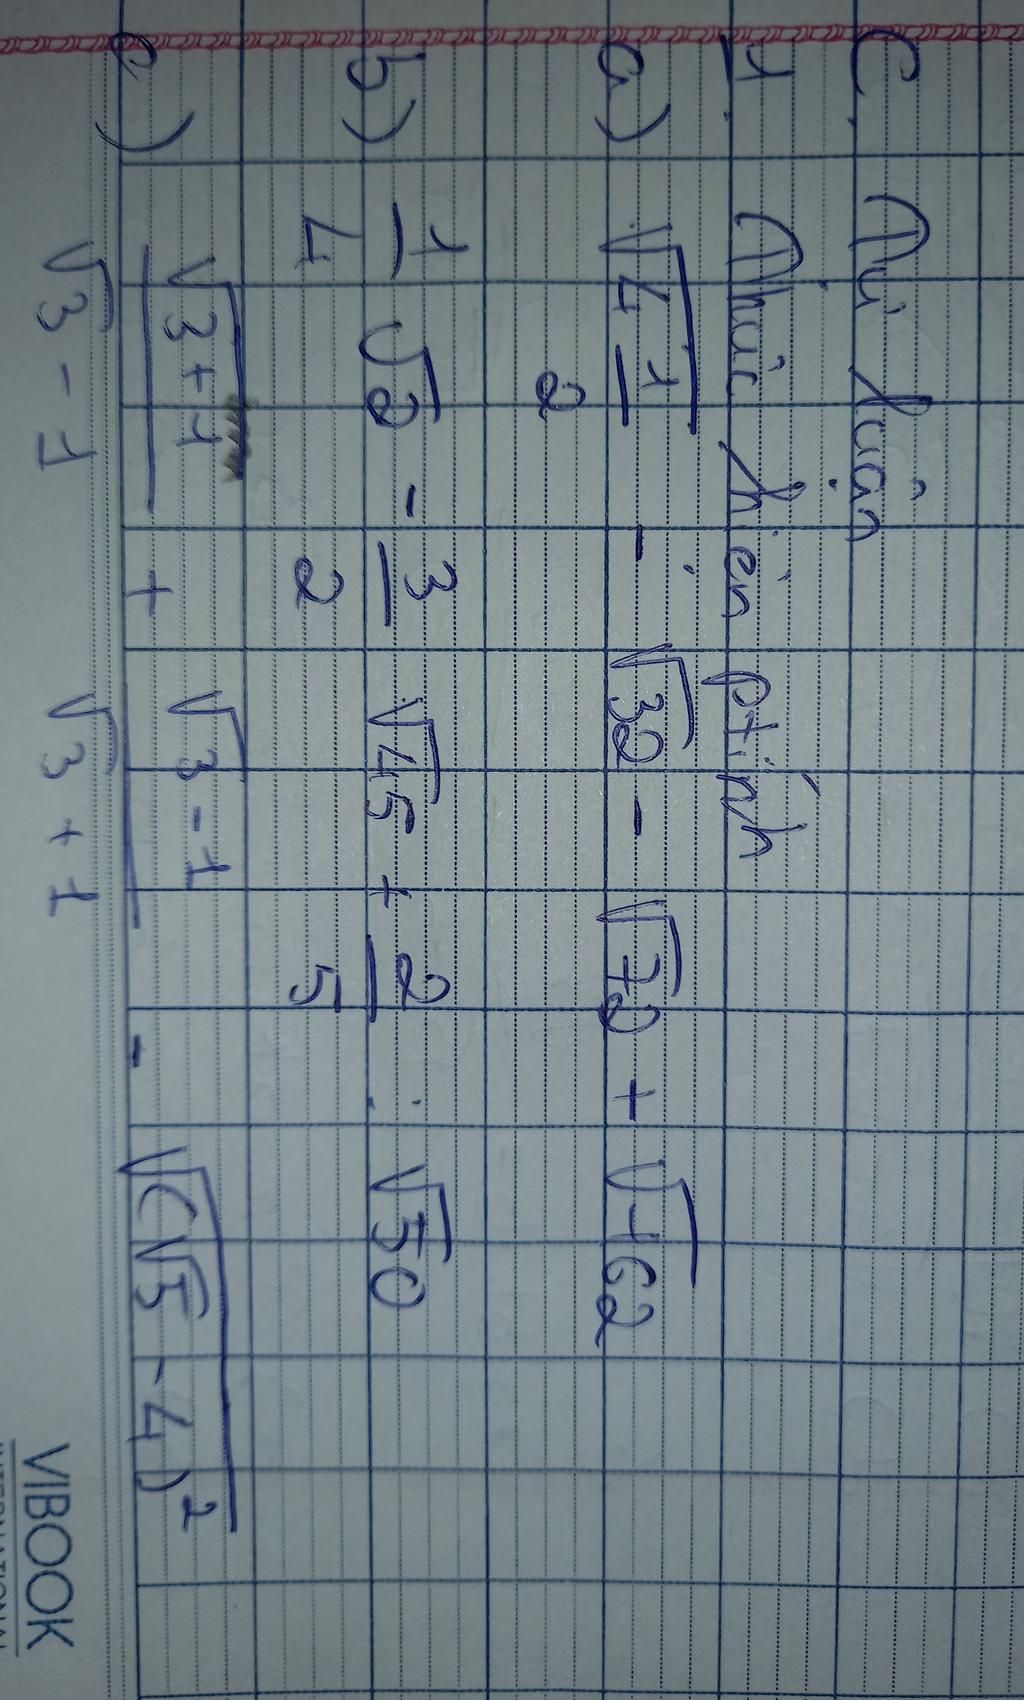 C. Tự luận
1. Thực hiện ptính
a) √(4 1/2) - √32 - √72 + √162
b) 1/4 √2 - 3/2 √45 + 2/5 . √50
c) √(3+1)/(√3 - 1) + (√3 - 1)/(√3 + 1) - √((√5 - 4)²)
VIBOOK